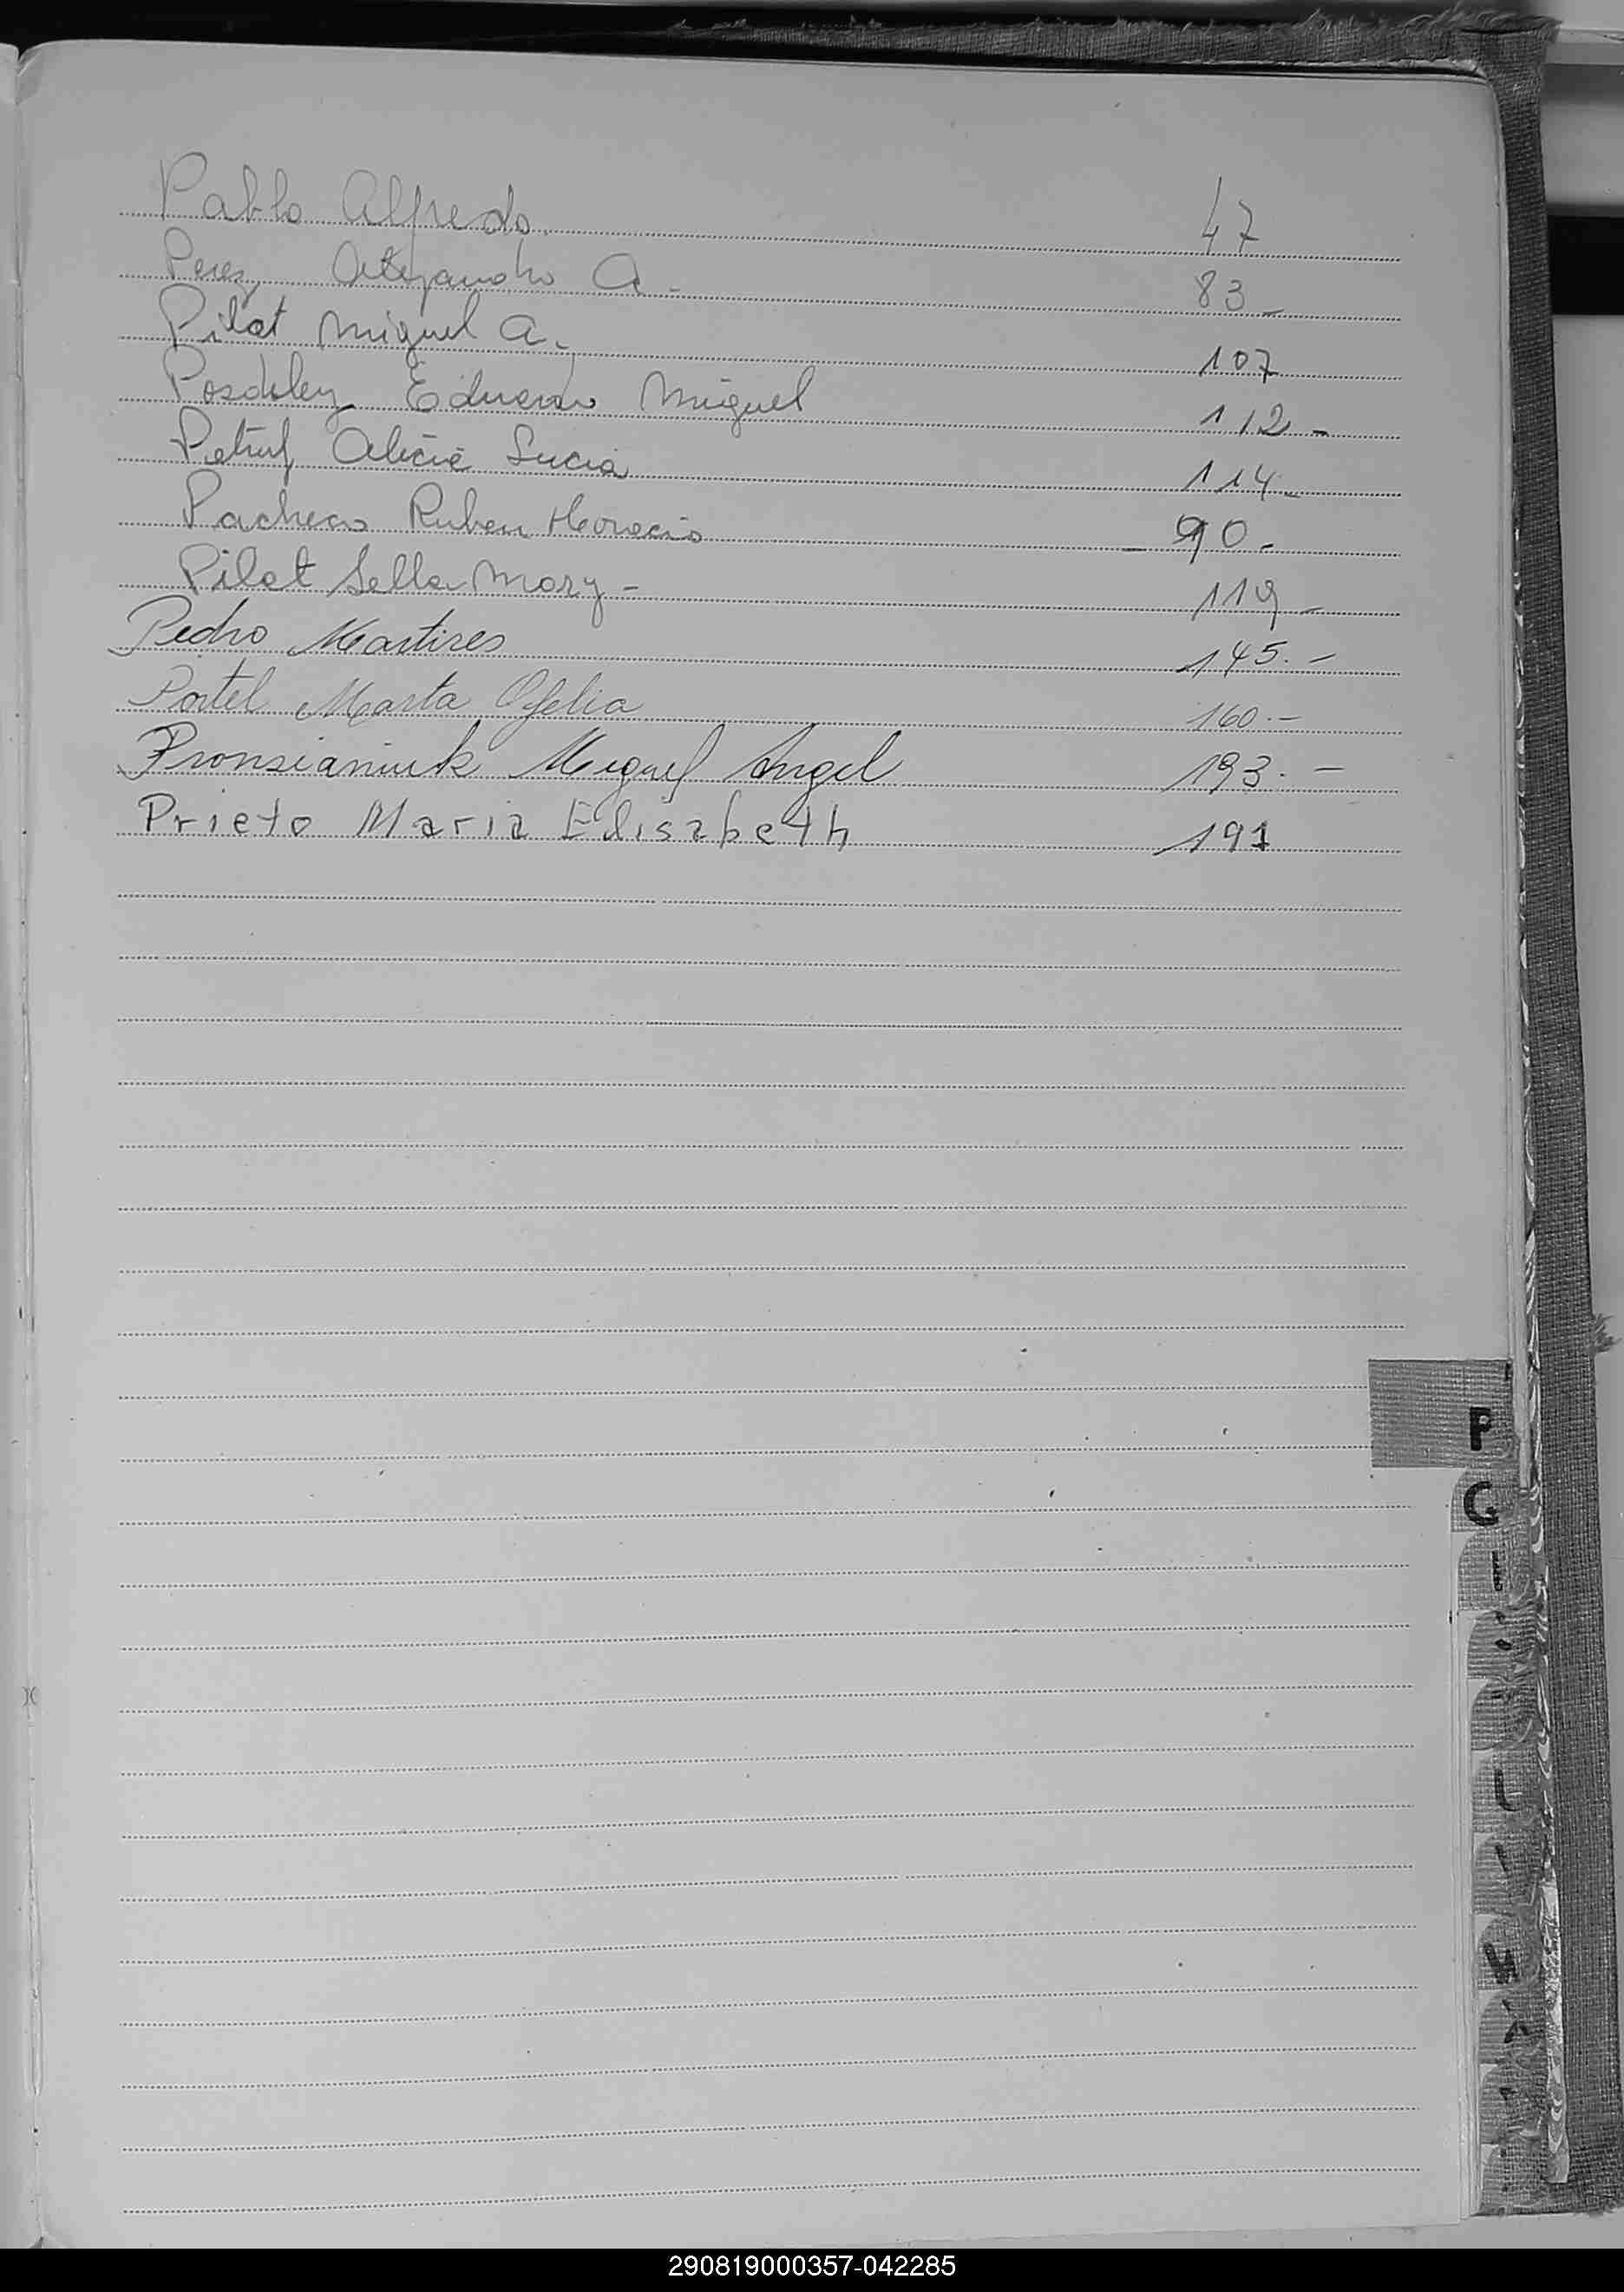 Pablo Alfredo. 47
Perez Alejandro A. - 83 -
Pilat Miguel A. - 107
Eduardo Miguel 112 -
Alicia Lucia 114 -
Pacheco Ruben Horacio - 90 -
Pilat Mary - 119 -
Pedro Martires 145. -
Portel Marta Ofelia 160. -
Pronsianiuk Miguel Angel 193. -
Prieto Maria Elisabeth 191
P
290819000357-042285